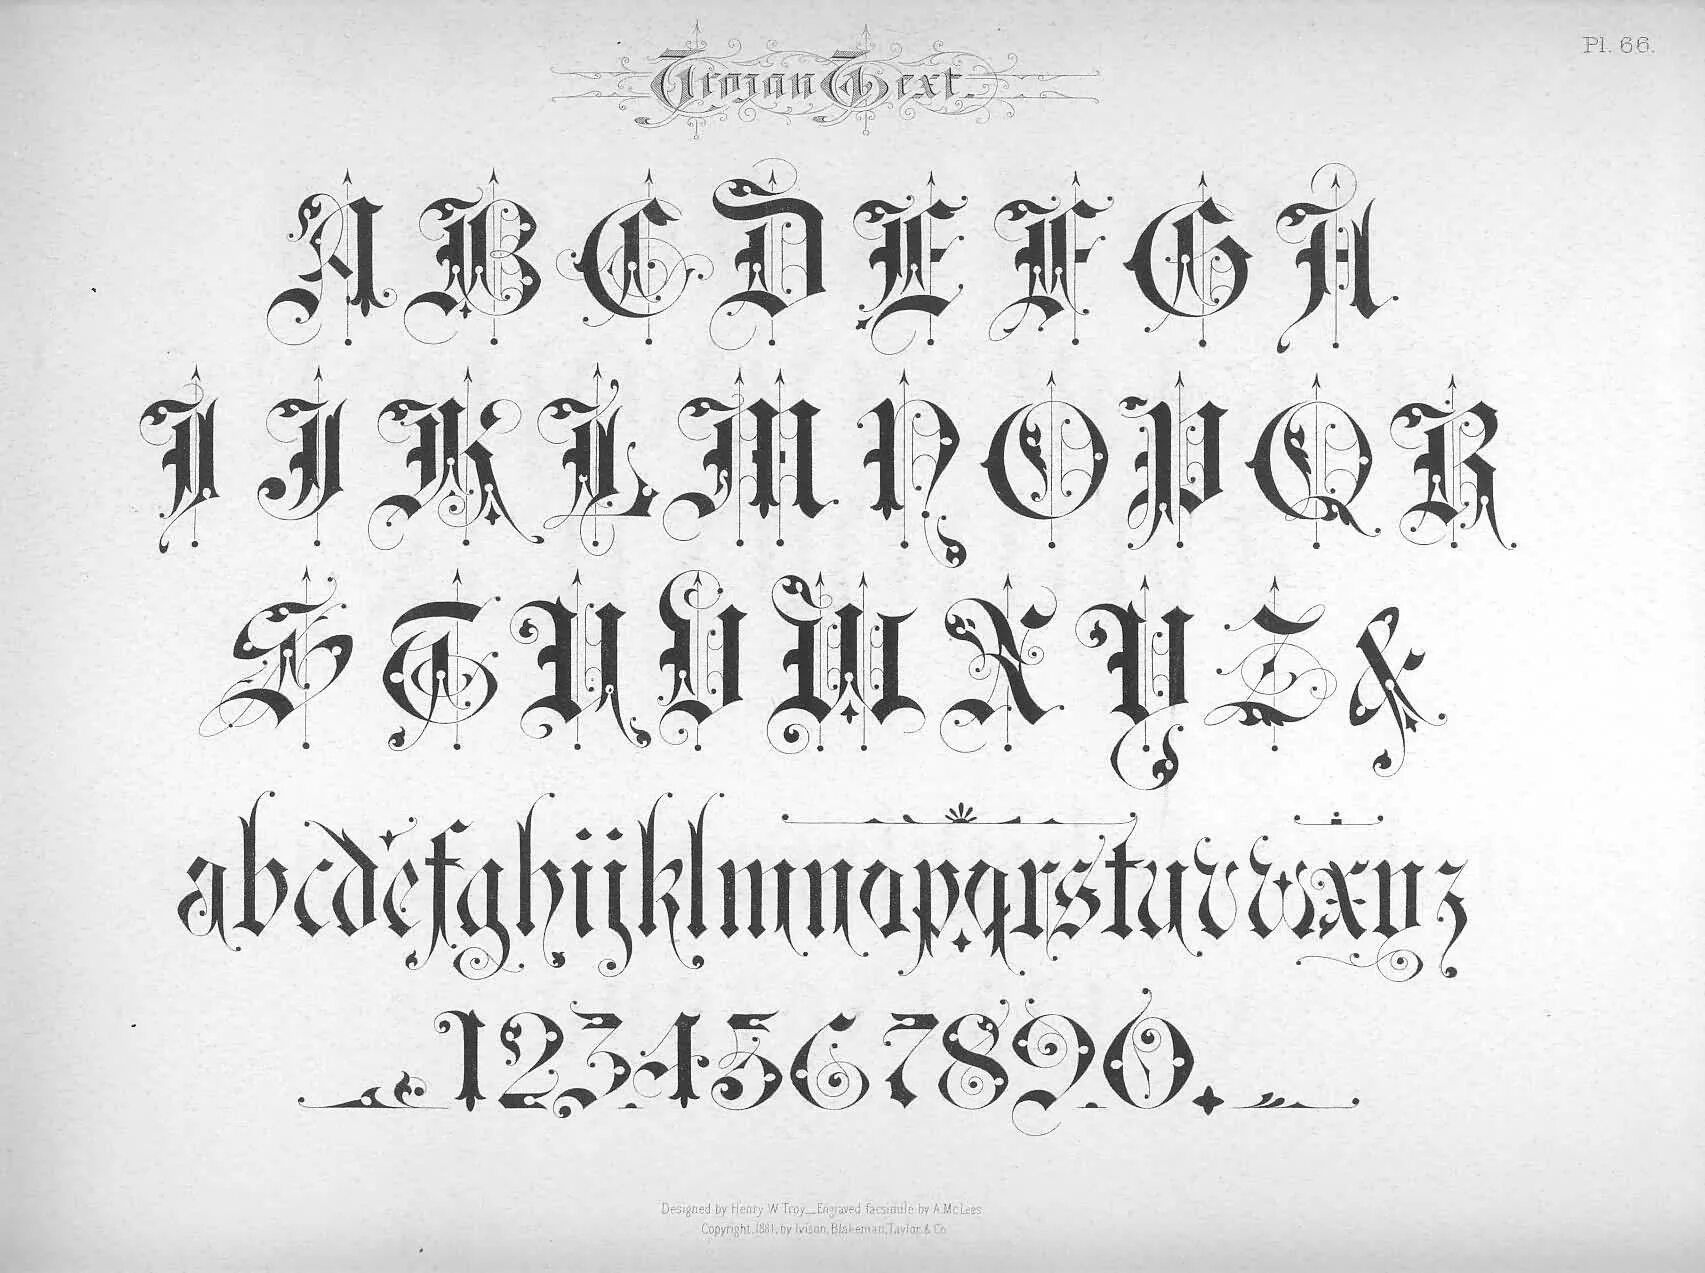 Pl. 66.
Trojan Text.
A B C D E F G H
I J K L M N O P Q R
S T U V W X Y Z &
abcdefghijklmnopqrstuvwxyz
1234567890.
Designed by Henry W Troy_Engraved facsimile by A.McLees
Copyright, 1881, by Ivison, Blakeman, Taylor, & Co